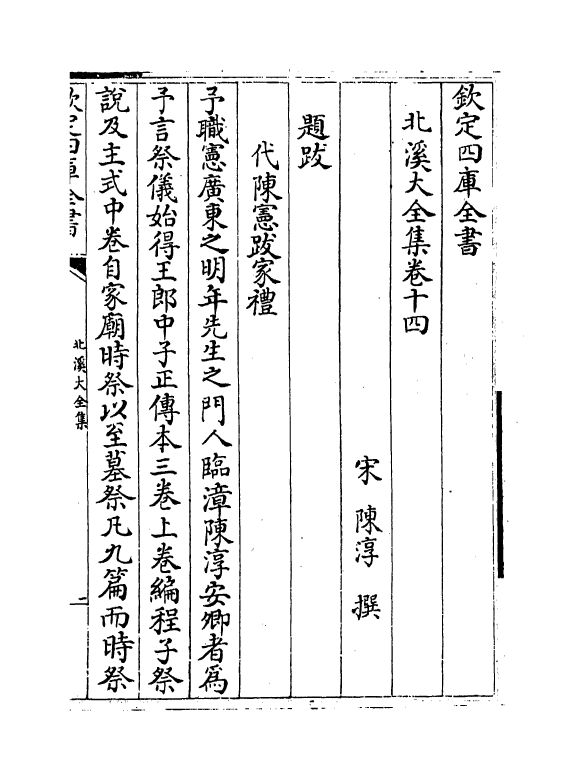 欽定四庫全書
北溪大全集卷十四
宋 陳淳 撰
題跋
代陳憲跋家禮
予職憲廣東之明年先生之門人臨漳陳淳安卿者爲
予言祭儀始得王郎中子正傳本三卷上卷編程子祭
說及主式中卷自家廟時祭以至墓祭凡九篇而時祭
欽定四庫全書
北溪大全集
一